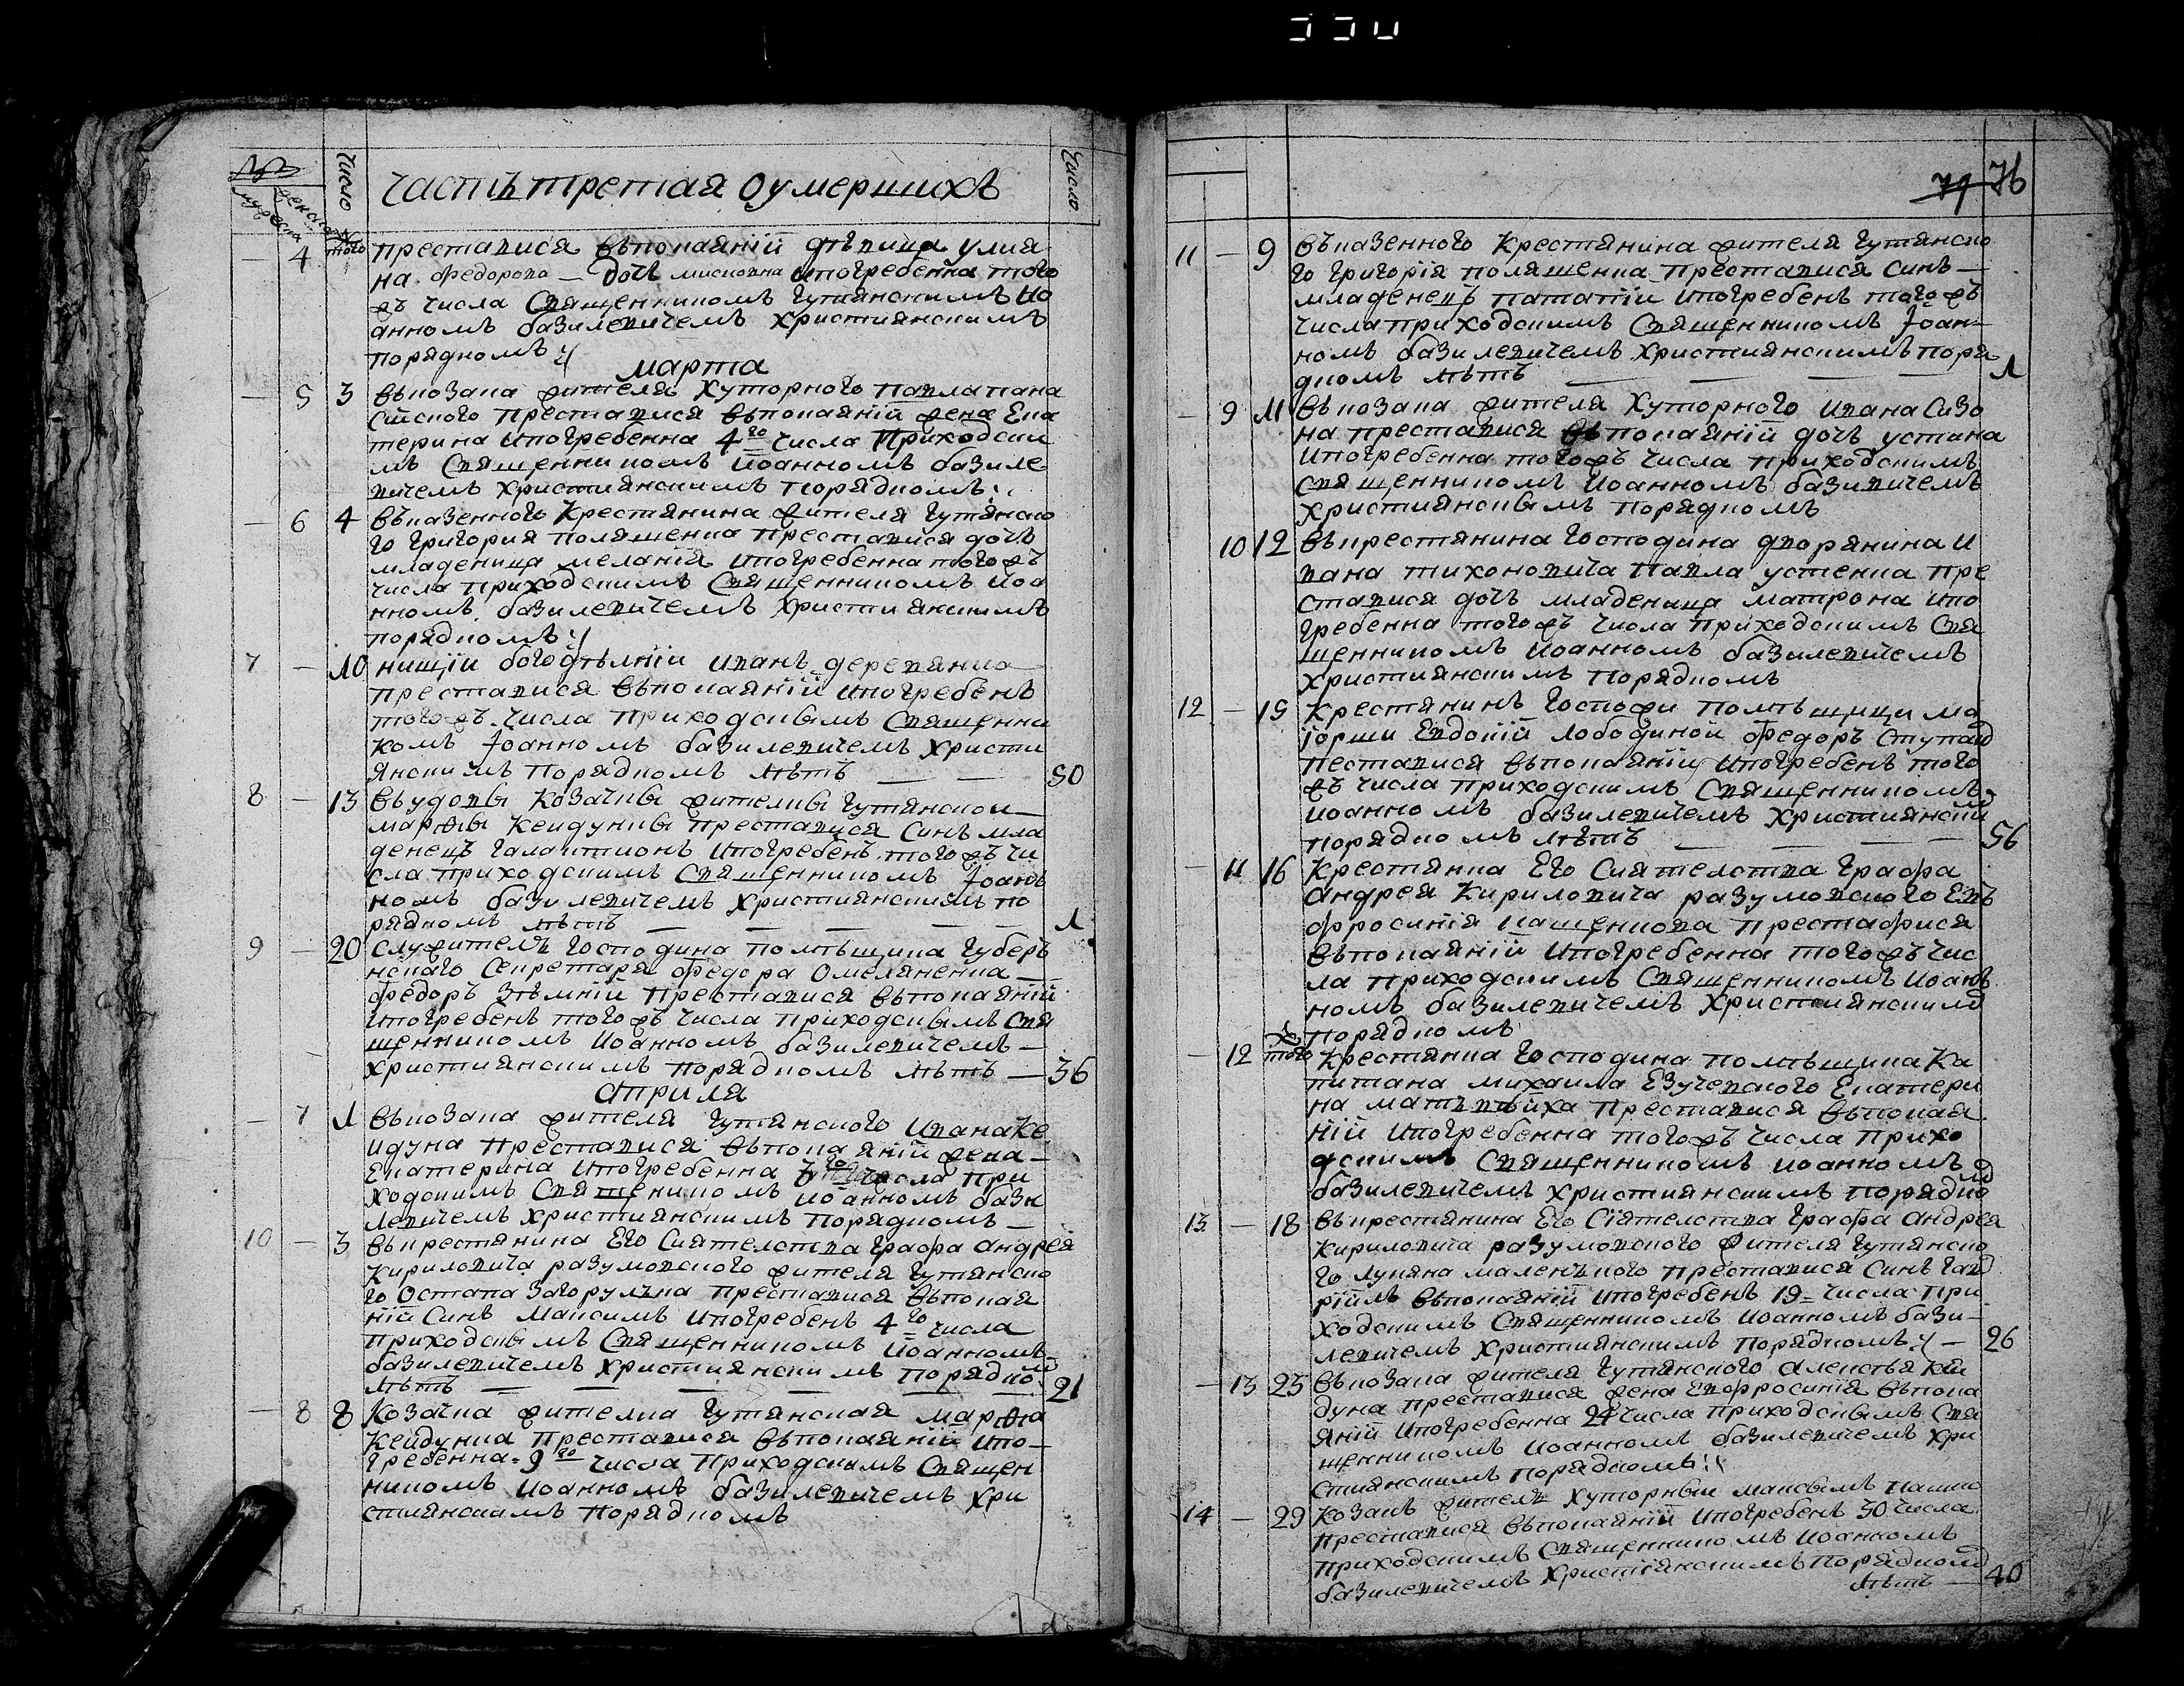 Число
Число
Часть третая оумершихъ
мужеска
женска
4 того престависа въпокаяній дѣвица улия
на федорова — дочь ипогребенна того
жъ числа Священникомъ гутянскимъ Ио
анномъ базилевичемъ християнскимъ
порядкомъ
марта
5 3 въкозака жителя хуторного павла пана
сійского престависа въпокаяній жена Ека
терина ипогребенна 4го числа Приходски
мъ Священникомъ Иоанномъ базиле
вичемъ християнскимъ порядкомъ
6 4 въказенного крестянина жителя гутянско
го григория поляшенка престависа дочь
младеница меланія ипогребенна того жъ
числа приходскимъ Священникомъ иоа
нномъ базилевичемъ християнскимъ
порядкомъ
7 — 10 нищій богодѣлній иванъ деревянко
престависа въпокаяній ипогребенъ
того жъ числа приходскымъ Священни
комъ Іоанномъ базилевичемъ христи
янскимъ порядкомъ лѣтъ — — 50
8 — 13 въудовы козачкы жителкы гутянской
марѳы Кейдункы престависа синъ мла
денецъ галактионъ ипогребенъ того жъ чи
сла приходскимъ Священникомъ Іоан
номъ базилевичемъ християнскимъ по
рядкомъ лѣтъ — — — — 1
9 — 20 служителъ господина помѣщика губеръ
нскаго Секретаря федора Омеляненка —
федоръ зѣмній престависа въпокаяній
ипогребенъ того жъ числа приходскымъ свя
щенникомъ иоанномъ базилевичемъ —
християнскимъ порядкомъ лѣтъ — 36
Априля
7 1 въкозака жителя гутянского ивана ке
йдуна престависа въпокаяній жена —
Екатерина ипогребенна числа при
ходскимъ Священикомъ иоанномъ бази
левичемъ християнскимъ порядкомъ —
10 — 3 въкрестянина Его Сиятелства графа андрея
Кириловича разумовского жителя гутянско
го Остапа загорулка престависа въпокая
ній синъ максимъ ипогребенъ 4го числа
приходскымъ Священникомъ иоанномъ
базилевичемъ християнскимъ порядкомъ
лѣтъ — — — — — 21
8 8 Козачка жителка гутянская марѳа
кейдунка престависа въпокаяній ипо-
гребенна 9го числа приходскимъ Священ
никомъ иоанномъ базилевичемъ хри
стиянскимъ порядкомъ
76
11 — 9 въказенного крестянина жителя гутянско
го григорія поляшенка престависа синъ —
младенецъ патапій ипогребенъ того жъ
числа приходскимъ Священникомъ Іоан-
номъ базилевичемъ християнскимъ поря
дкомъ лѣтъ — — — 1
9 11 въкозака жителя хуторного ивана сизо
на престависа въпокаяній дочъ устина
ипогребенна того жъ числа приходскимъ
священникомъ иоанномъ базивичемъ
християнскымъ порядкомъ
10 12 въкрестянина господина дворянина и
вана тихоновича павла устенка пре
стависа дочъ младеница матрона ипо
гребенна того жъ числа приходскимъ свя
щенникомъ иоанномъ базилевичемъ
християнскимъ порядкомъ
12 — 15 Крестянинъ госпожи помѣщици ма
іорши Евдокій лободиной федоръ
пестависа въпокаяній ипогребенъ того
жъ числа приходскимъ Священникомъ
иоанномъ базилевичемъ християнским
порядкомъ лѣтъ — — — 56
11 16 Крестянка Его Сиятелства графа
Андрея Кириловича разумовского Ев
фросинія пащенкова престафися
въпокаяній ипогребенна того жъ чис
ла приходскимъ Священникомъ иоан
номъ базилевичемъ християнским
порядкомъ
12 того крестянка господина помѣщика ка
питана михаила Езучевского Екатери
на матвѣйха престависа въпокая
ній ипогребенна того жъ числа прихо
дскимъ Священникомъ иоанномъ
базилевичемъ християнскимъ порядком
13 — 18 въкрестянина Его Сіятелства графа андрея
Кириловича разумовского жителя гутянско
го лукяна маленкого престависа синъ гав
рійлъ въпокаяній ипогребенъ 19 числа при
ходскимъ Священникомъ иоанномъ бази-
левичемъ християнскимъ порядкомъ — 26
13 23 въкозака жителя гутянского алексѣя кей
дуна престависа жена Евфросинія въпока
яній ипогребенна 24 числа приходскымъ Свя
щенникомъ иоанномъ базилевичемъ хри
стиянскимъ порядкомъ
14 — 29 Козакъ жителъ хуторный максымъ пашко
престависа въпокаяній ипогребенъ 30 числа
приходскимъ Священникомъ иоанномъ
базилевичемъ христіянскимъ порядком
лѣтъ — 40